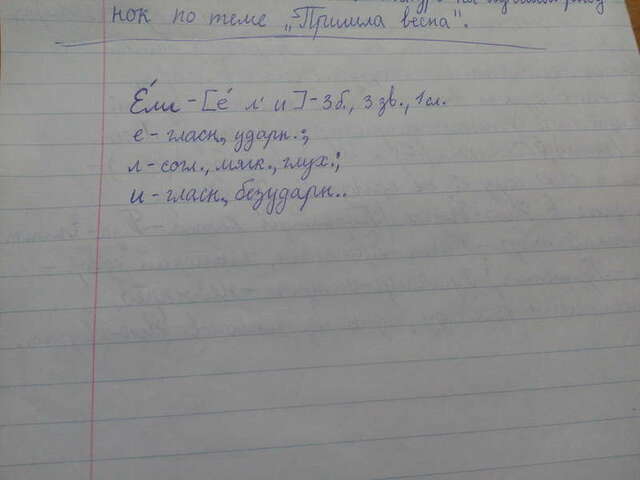 нок по теме „Пришла весна".
Е́ли - [е́ л' и] - 3 б., 3 зв., 1 сл.
е - гласн., ударн.:;
л - согл., мягк., глух.:;
и - гласн., безударн..